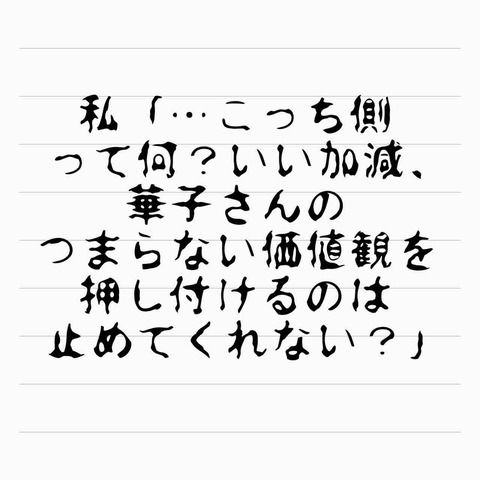 私「…こっち側
って何？いい加減、
華子さんの
つまらない価値観を
押し付けるのは
止めてくれない？」